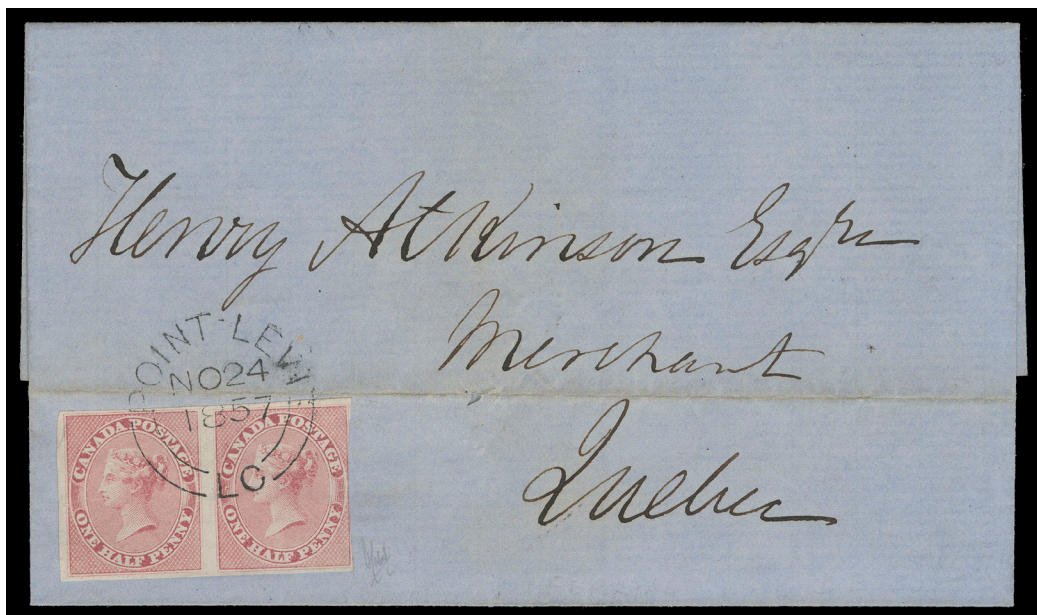 Henry Atkinson Esqre
Merchant
Quebec
POINT-LEVI
NO 24
1857
LC
CANADA POSTAGE
ONE HALF PENNY
CANADA POSTAGE
ONE HALF PENNY